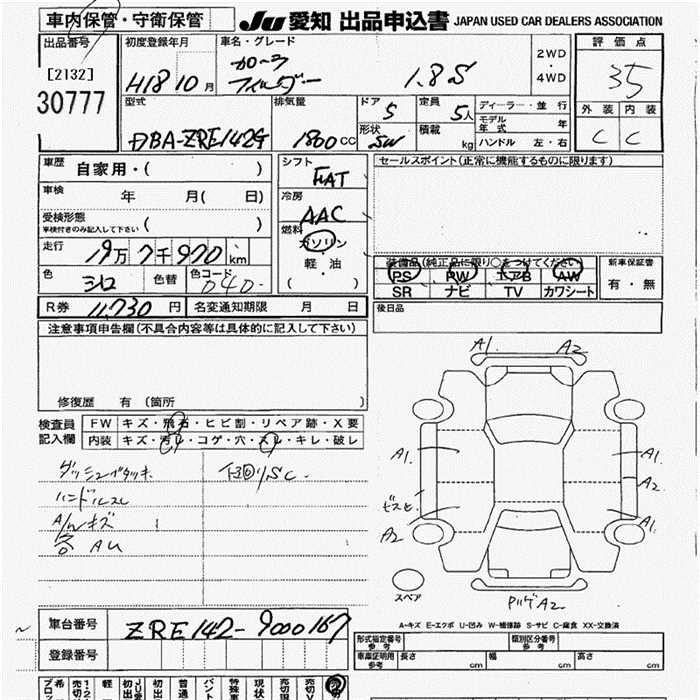 車内保管・守衛保管
JU 愛知 出品申込書 JAPAN USED CAR DEALERS ASSOCIATION
出品番号
[2132]
30777
初度登録年月
H18 10 月
車名・グレード
カローラ
フィルダー
1.8S
2WD
・
4WD
評価点
35
外装 内装
C C
型式
DBA-ZRE142G
排気量
1800 cc
ドア
5
形状
SW
定員
5人
積載
kg
ディーラー・並行
モデル年式 年
ハンドル 左・右
車歴
自家用・( )
車検
年 月( 日)
受検形態
車検付きのみ記入して下さい ( )
走行
19万 7千 970 km
色
シロ
色替
色コード
040
シフト
FAT
冷房
AAC
燃料
ガソリン
・
軽・油
( )
セールスポイント(正常に機能するものに限ります)
装備品(純正品に限り○をつけてください)
PS PW エアB AW
SR ナビ TV カワシート
新車保証書
有・無
後日品
R券 11,730 円
名変通知期限 月 日
注意事項申告欄(不具合内容等は具体的に記入して下さい)
修復歴 有 (箇所 )
検査員記入欄
FW キズ・飛石・ヒビ割・リペア跡・X要
内装 キズ・汚レ・コゲ・穴・スレ・キレ・破レ
ハンドルスレ
A/Wキズ
A1. A2
A1.
A1.
A2
A1
A2
スペア
A2
A-キズ E-エクボ U-凹み W-補修跡 S-サビ C-腐食 XX-交換済
車台番号
ZRE142-9000167
登録番号
形式指定番号
参考
類別区分番号
参考
車庫証明用
参考
長さ cm 幅 cm 高さ cm